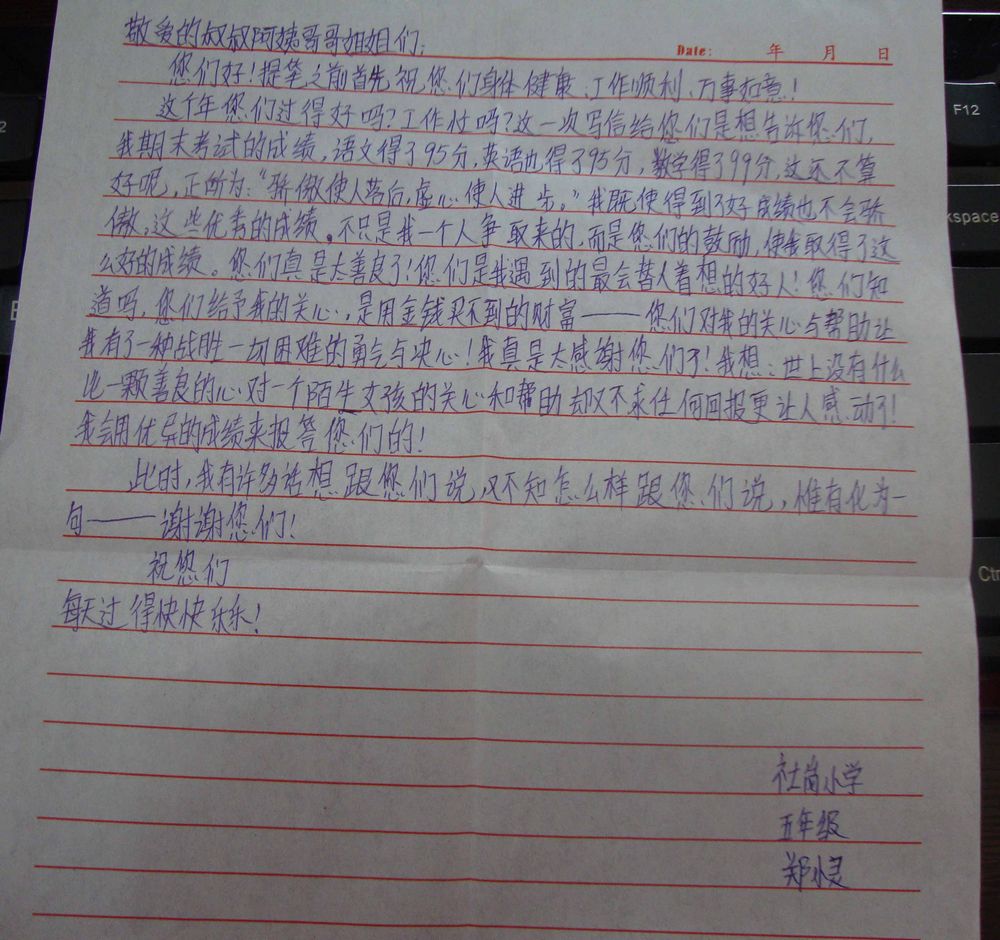 敬爱的叔叔阿姨哥哥姐姐们:
Date: 年 月 日
您们好!提笔之前首先祝您们身体健康、工作顺利、万事如意!
这个年您们过得好吗?工作忙吗?这一次写信给您们是想告诉您们,
我期末考试的成绩,语文得了95分,英语也得了95分,数学得了99分,这还不算
好呢,正所为:“骄傲使人落后,虚心使人进步。”我既使得到了好成绩也不会骄
傲,这些优秀的成绩。不只是我一个人争取来的,而是您们的鼓励,使我取得了这
么好的成绩。您们真是太善良了!您们是我遇到的最会替人着想的好人!您们知
道吗,您们给予我的关心,是用金钱买不到的财富——您们对我的关心与帮助让
我有了一种战胜一切困难的勇气与决心!我真是太感谢您们了!我想:世上没有什么
比一颗善良的心对一个陌生女孩的关心和帮助却又不求任何回报更让人感动了!
我会用优异的成绩来报答您们的!
此时,我有许多话想跟您们说,又不知怎么样跟您们说,惟有化为一
句——谢谢您们!
祝您们
每天过得快快乐乐!
社岗小学
五年级
郑小灵
F12
kspace
Ctr
2
E